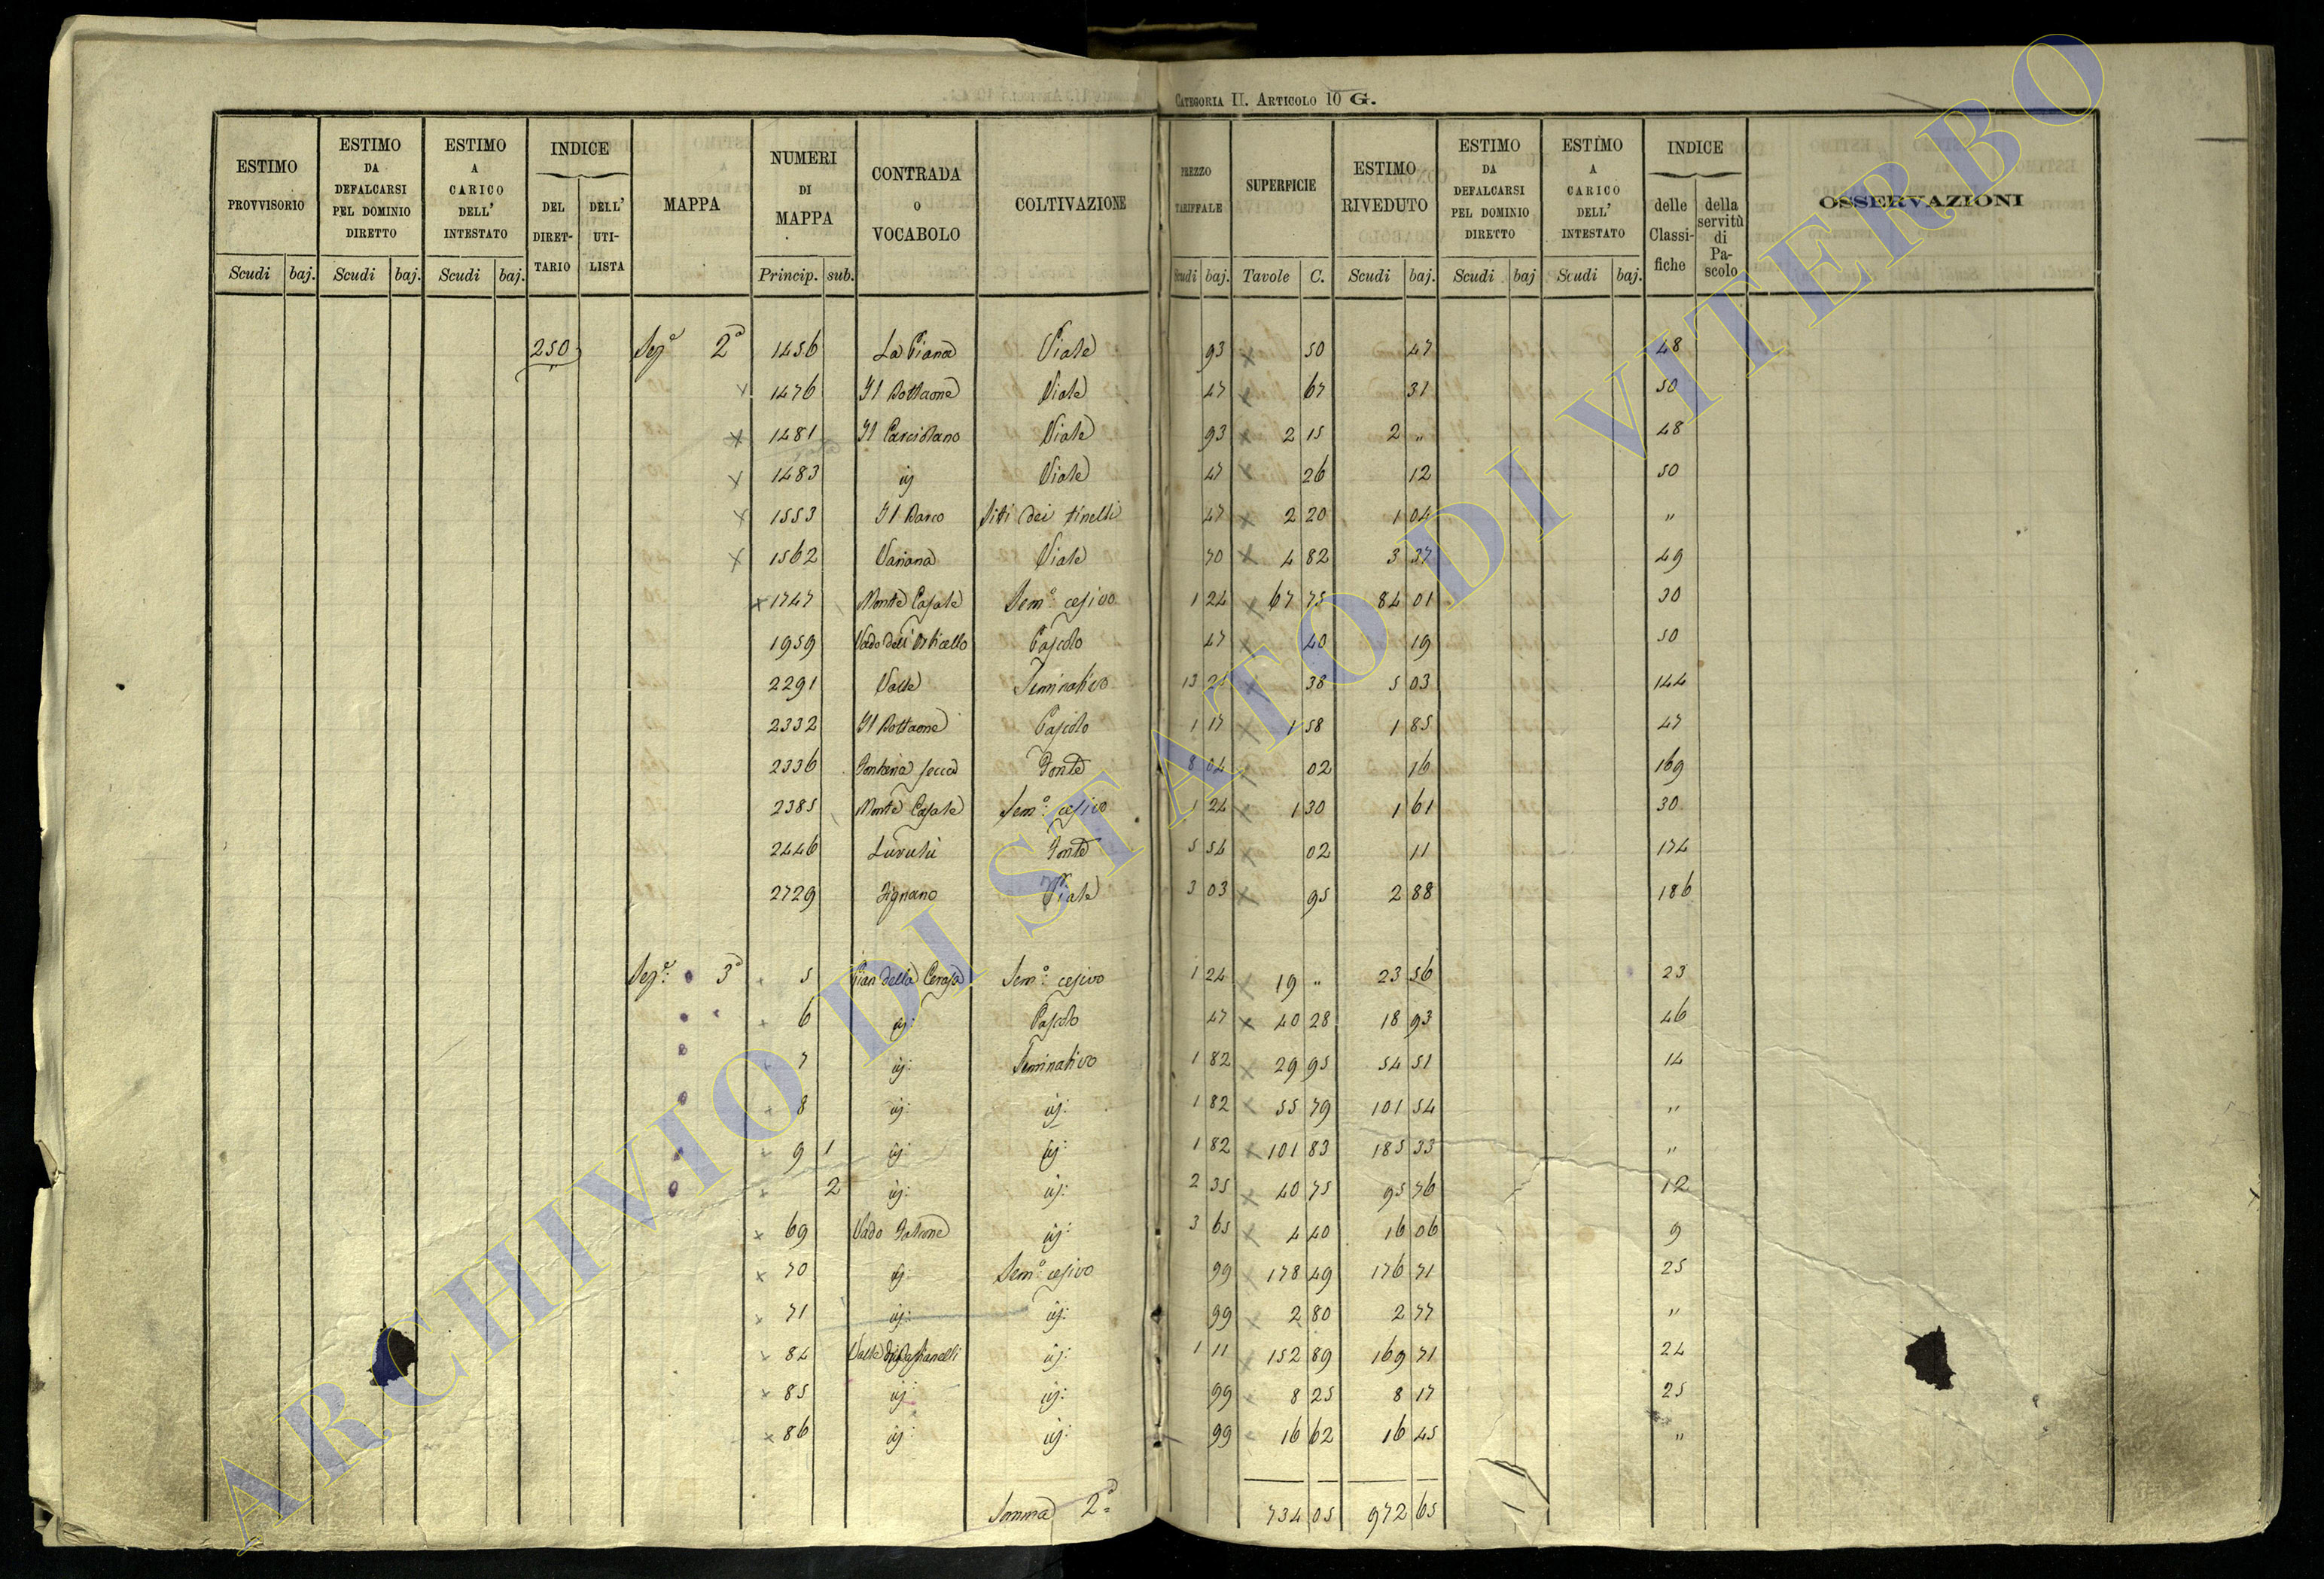 CATEGORIA II. ARTICOLO 10 G.
ESTIMO PROVVISORIO | ESTIMO DA DEFALCARSI PEL DOMINIO DIRETTO | ESTIMO A CARICO DELL' INTESTATO | INDICE DEL DIRET-TARIO | DELL' UTI-LISTA | MAPPA | NUMERI DI MAPPA | CONTRADA O VOCABOLO | COLTIVAZIONE | PREZZO TARIFFALE | SUPERFICIE | ESTIMO RIVEDUTO | ESTIMO DA DEFALCARSI PEL DOMINIO DIRETTO | ESTIMO A CARICO DELL' INTESTATO | INDICE delle Classi-fiche | della servitù di Pa-scolo | OSSERVAZIONI
Scudi baj. Scudi baj. Scudi baj. Princip. sub. Scudi baj. Tavole C. Scudi baj. Scudi baj Scudi baj.
250 Sez.e 2a 1456 La Piana Viale 93 50 47 48
1476 Il Bottaone Viale 47 67 31 50
1481 Il Viale 93 2 15 2 „ 48
1483 ij Viale 47 26 12 50
1553 Il Barco Siti dei tinelli 47 2 20 1 04 „
1562 Variana Viale 70 4 82 3 37 49
1747 Monte Casale Sem.o cesivo 1 24 67 75 84 01 30
1959 Vado dell' Orticello Pascolo 47 40 19 50
2291 Valle Seminativo 13 24 38 5 03 144
2332 Il Bottaone Pascolo 1 17 1 58 1 85 47
2336 Fontana secca Fonte 8 04 02 16 169
2385 Monte Casale Sem.o cesivo 1 24 1 30 1 61 30
2446 Fonte 5 54 02 11 174
2729 Fignano Viale 3 03 95 2 88 186
Sez.e 3a 5 Pian della Cerasa Sem.o cesivo 1 24 19 „ 23 56 23
6 ij: Pascolo 47 40 28 18 93 46
7 ij: Seminativo 1 82 29 95 54 51 14
8 ij: ij: 1 82 55 79 101 54 „
9 1 ij: ij: 1 82 101 83 185 33 „
2 ij: ij: 2 35 40 75 95 76 12
69 Vado ij: 3 65 4 40 16 06 9
70 ij: Sem.o cesivo 99 178 49 176 71 25
71 ij: ij: 99 2 80 2 77 „
84 Valle ij: 1 11 152 89 169 71 24
85 ij: ij: 99 8 25 8 17 25
86 ij: ij: 99 16 62 16 45 „
Somma 2a 734 05 972 65
ARCHIVIO DI STATO DI VITERBO